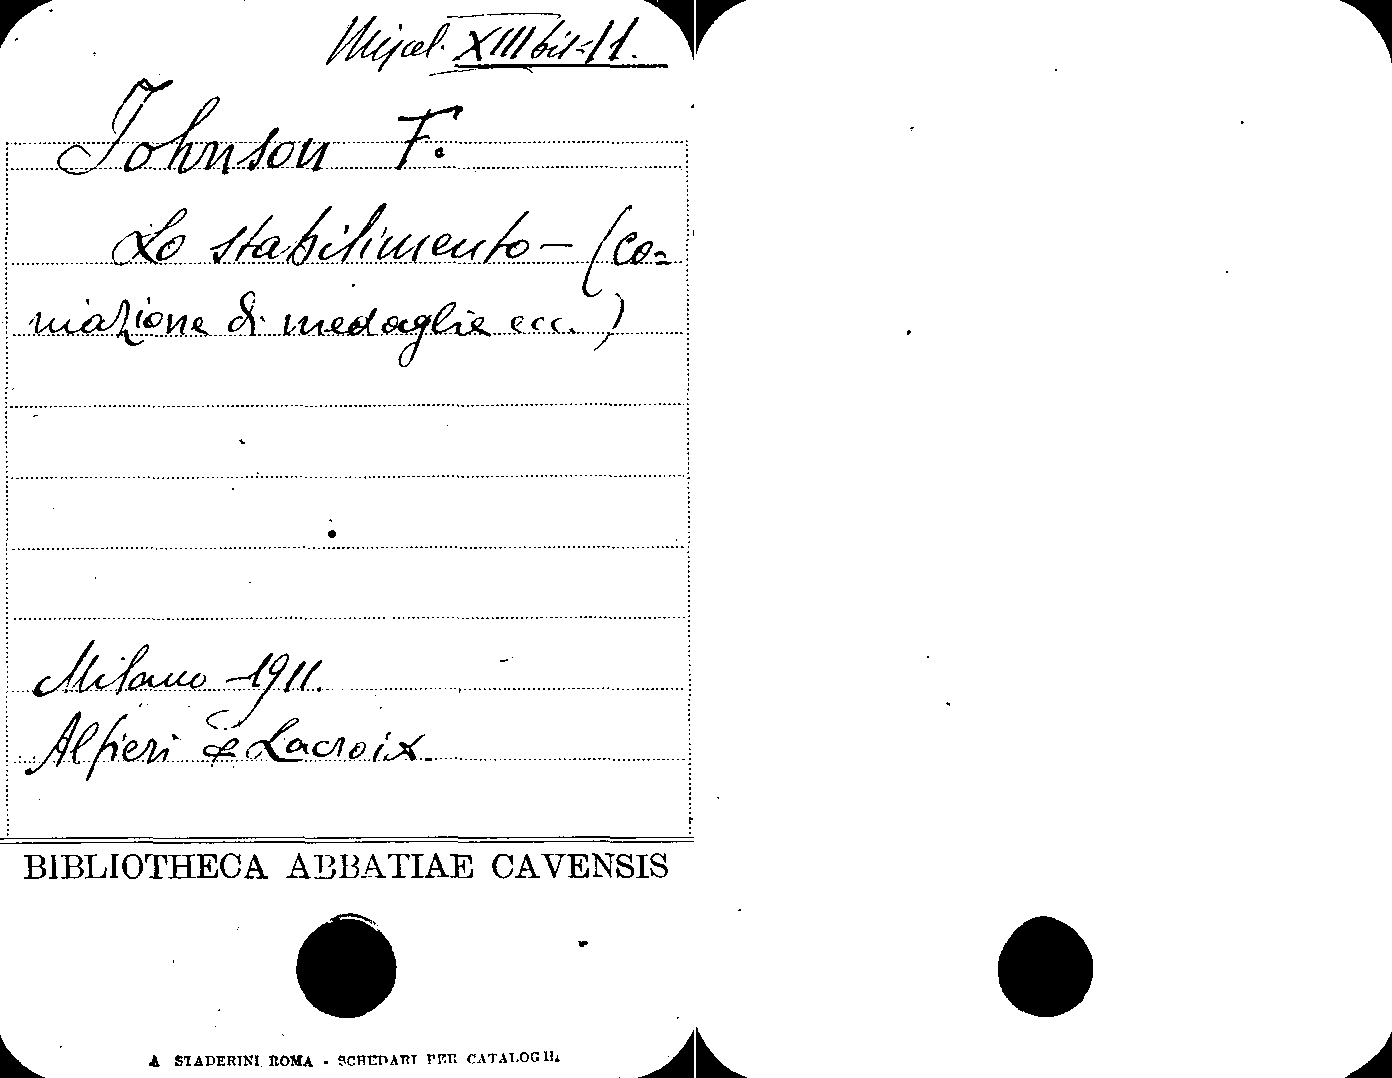 Miscel. XIII bis=11.
Johnson F.
Lo stabilimento – (co=
niazione di medaglie ecc.)
Milano – 1911.
Alfieri & Lacroix.
BIBLIOTHECA ABBATIAE CAVENSIS
A STADERINI ROMA - SCHEDARI PER CATALOGHI